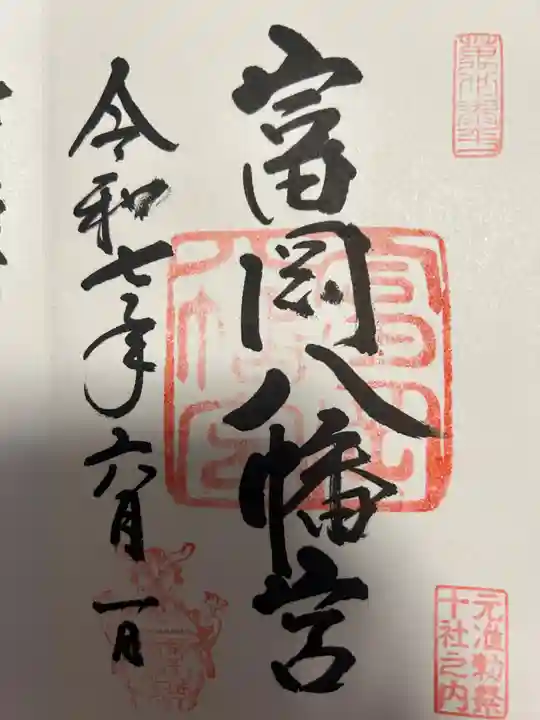 富岡八幡宮
元准勅祭
十社之内
令和七年六月一日